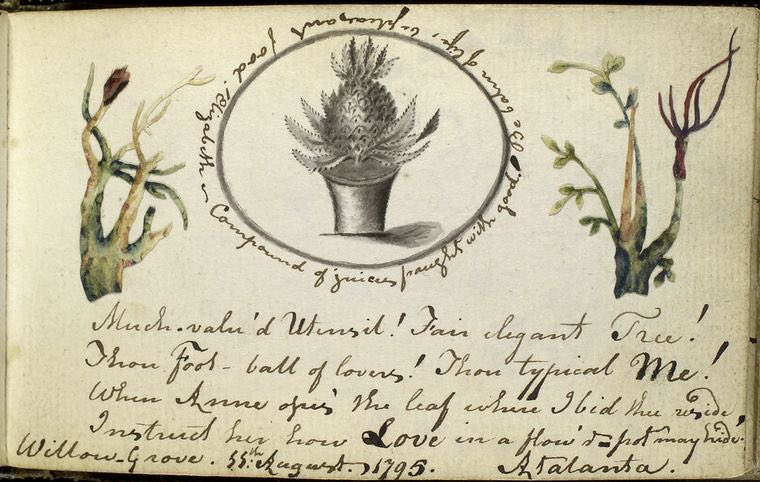 Compound of juices fraught with good. Be balm of life, & pleasant food! Elizabeth ~
Much-valu'd Utensil! Fair elegant Tree!
Thou Foot-ball of lovers! Thou typical Me!
When Anne ope's the leaf where I bid thee reside,
Instruct her how Love in a flow'r-pot may hide.
Willow-Grove. 11th August. 1795. Atalanta.